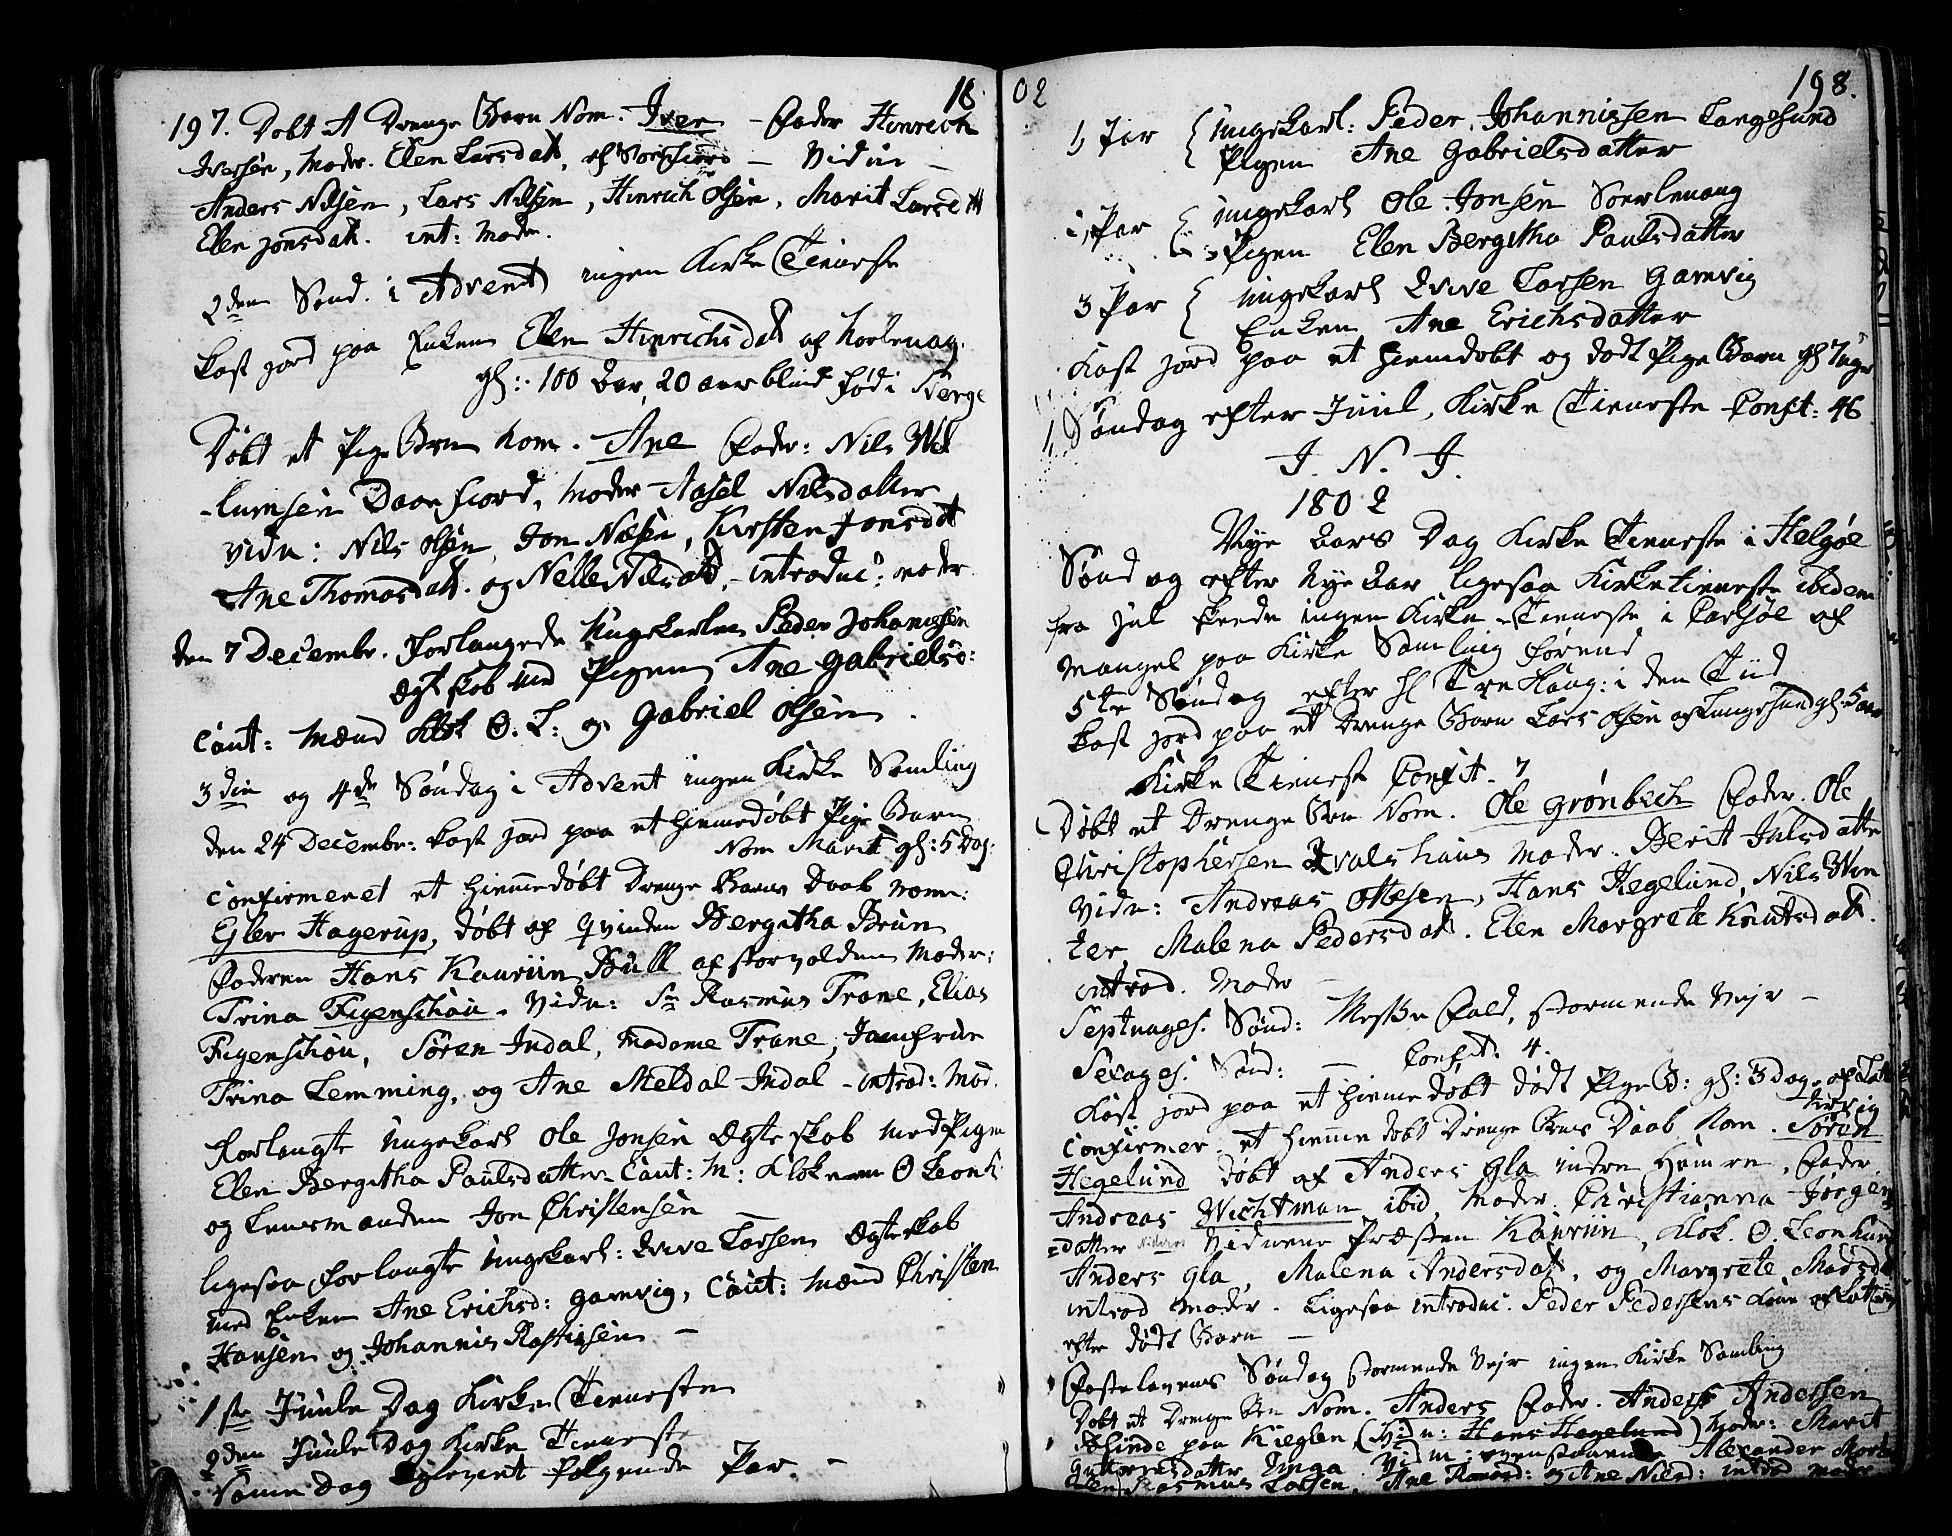 18
197. Døbt et Drenge Barn Nom. Iver - Fader Hinrich
Iversen, Moder. Elen Larsdatt, af - Vidn: -
Anders Nilsen, Lars Nilsen, Hinrich Olsen, Marit Larsdtt
Elen Jonsdatt. int: Moder.
2den Sønd. i Advent ingen Kirke Tieneste
Kast jord paa Enken Elen Hinrichsdatt af
gl: 100 Aar, 20 aar blind født i Berge
Døbt et Pige Barn Nom. Ane Fader: Nils Wil
-lumsen Daafiord, Moder Aasel Nilsdatter
Vidn: Nils Olsen, Jon Nilsen, Kirsten Jonsdtt
Ane Thomasdatt. og Nelle Nilsdatt, - introduc: moder
den 7 Decembr. forlangede Ungekarlen Peder Johannesen
Ægteskab med Pigen Ane Gabrielsd:
Caut: Mænd Klok O. L: og Gabriel Olsen.
3die og 4de Søndag i Advent ingen Kirke Samling
den 24 Decembr: kast jord paa et hiemedøbt Pige Barn
Nom Marit gl: 5 Dag.
Confirmeret et hiemmedøbt Drenge Barns Daab nom:
Ejler Hagerup, døbt af Qvinden Bergitha Brun
Faderen Hans Kauriin Bull af Moder:
Trina Figenschou. Vidn: Sr Rasmus Trane, Elias
Figenschou, Søren Indal, Madame Trane, Jomfrue
Trina Lemming, og Ane Meldal Indal - introd: Mod.
Forlangte Ungekarl Ole Jonsen Ægteskab med Pigen
Elen Bergitha Paulsdatter Caut: M: Klokeren O Leonh
og Lensmanden Jon Christensen
ligesaa forlangte Ungekarl: Larsen Ægteskab
med Enken Ane Erichsd: Gamvig, Caut: Mænd Christen
Hansen og Johannis Rasmusen -
1ste Juule Dag Kirke Tieneste
2den Juule Dag Kirke Tieneste
Samme Dag følgende Par. -
02
198.
1, Par { Ungekarl: Peder Johannissen Langesund
Pigen Ane Gabrielsdatter
2, Par { Ungekarl Ole Jonsen
Pigen Elen Bergitha Paulsdatter
3 Par { Ungekarl Larsen Gamvig
Enken Ane Erichsdatter
Kast jord paa et hiemdøbt og dødt Pige Barn gl
1, Søndag efter Juul, Kirke Tieneste Confit: 46
I. N. J.
1802
Nye Aars Dag Kirke Tieneste i Helgøe
Søndag efter Nye Aar ligesaa Kirketieneste ibidem
fra Jul skede ingen Kirke Tieneste i Carlsøe af
Mangel paa Kirke Samling førend
5te Søndag efter Hl Tre Kong: i den Tiid
Kast jord paa et Drenge Barn Lars Olsen af Langesund gl: 5 aar
Kirke Tieneste Confit. 7
Døbt et Drenge Brn Nom. Ole Grønbech Fader. Ole
Christophersen Qvalshaus Moder. Berit Julsdatte
Vidn: Andreas Ottesen, Hans Hegelund, Nils Win
ter, Malena Pedersdatt. Elen Margrete Knutsdatt.
introd. Moder -
Septuages. Sønd: Messe Fald, stormende Vejr -
Sexages. Sønd: - Confit: 4.
Kast jord paa et hiemmedøbt dødt Pige B: gl: 3 dage af
Confirmer. et hiemmedøbt Drenge Brns Daab Nom. Søren
Hegelund døbt af Anders Gla indre Hamre, Fader.
Andreas Wichtman ibid, Moder. Christianna Jørgens
=datter Vidnerne Præsten Kauriin, Klok. O. Leonhard
Anders Gla, Malena Andersdatt. og Margrete Madsdatt
introd Moder. Ligesaa introduc. Peder Pedersens Kone af
efter dødt Barn -
Fastelavens Søndag stormende Vejr ingen Kirke Samling
Døbt et Drenge Brn Nom. Anders Fader. Anders Andersen
paa (Vidn: Hans Hegelund) Moder: Marit
Guttormsdatter Vidn: Alexander
Rasmus Larsen, Ane og Ane Nilsd: introd moder